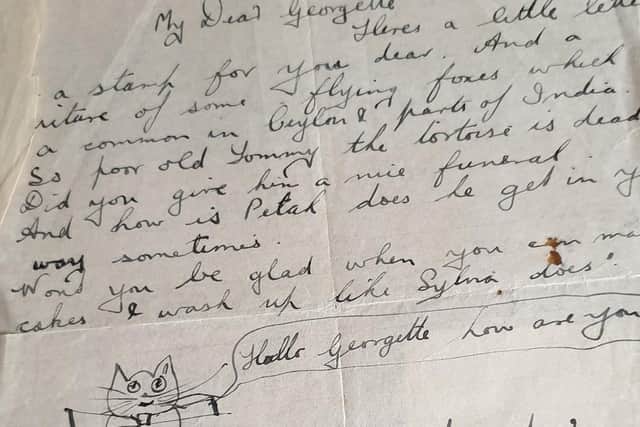 My Dear Georgette
Heres a little lette
a stamp for you dear. And a
icture of some flying foxes which
a common in Ceylon & parts of India.
So poor old Tommy the tortoise is dead
Did you give him a nice funeral
And how is Petah does he get in y
way sometimes.
Wont you be glad when you can ma
cakes & wash up like Sylvia does.
Hallo Georgette how are you